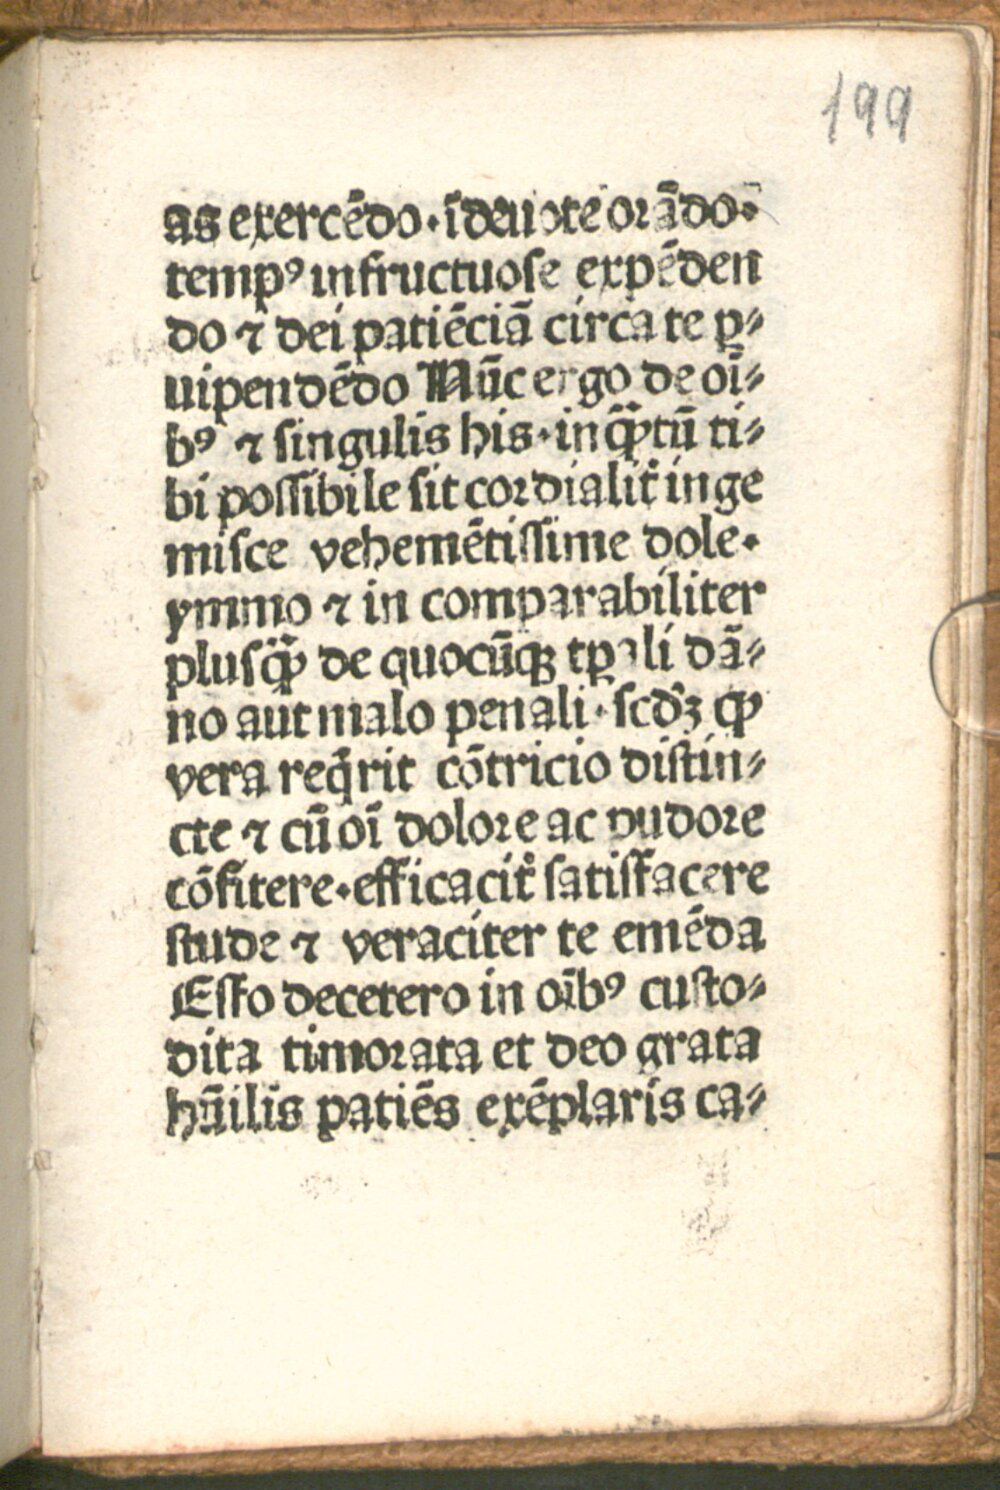 199
as exercēdo· īdeuote orādo·
tempꝰ infructuose expēden
do ⁊ dei patiēciā circa te p⸗
uipendēdo Nūc ergo de oī⸗
bꝰ ⁊ singulis his· inqͣꝫtū ti⸗
bi possibile sit cordialit̉ inge
misce vehemētissime dole·
ymmo ⁊ in comparabiliter
plusqͣꝫ de quocūqꝫ tꝑali dā⸗
no aut malo penali· scd̄ꝫ ꝙ
vera req̄rit cōtricio distin⸗
cte ⁊ cū oī dolore ac pudore
cōfitere· efficacit̉ satisfacere
stude ⁊ veraciter te emēda
Esto decetero in oībꝰ custo⸗
dita timorata et deo grata
hūilis patiēs exēplaris ca⸗